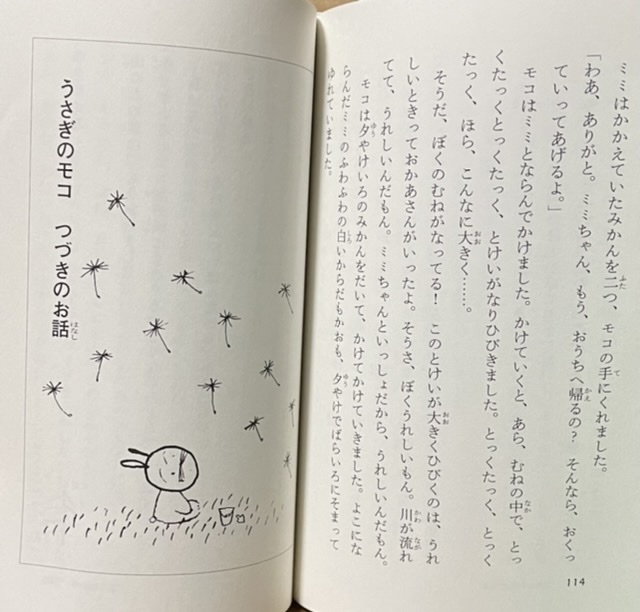 ミミはかかえていたみかんを二つ、モコの手にくれました。
「わあ、ありがと。ミミちゃん、もう、おうちへ帰るの? そんなら、おくっ
ていってあげるよ。」
モコはミミとならんでかけました。かけていくと、あら、むねの中で、とっ
くたっくとっくたっく、とけいがなりひびきました。とっくたっく、とっく
たっく、ほら、こんなに大きく……。
そうだ、ぼくのむねがなってる! このとけいが大きくひびくのは、うれ
しいときっておかあさんがいったよ。そうさ、ぼくうれしいもん。川が流れ
てて、うれしいんだもん。ミミちゃんといっしょだから、うれしいんだもん。
モコは夕やけいろのみかんをだいて、かけてかけていきました。よこにな
らんだミミのふわふわの白いからだもかおも、夕やけでばらいろにそまって
ゆれていました。
114
うさぎのモコ つづきのお話